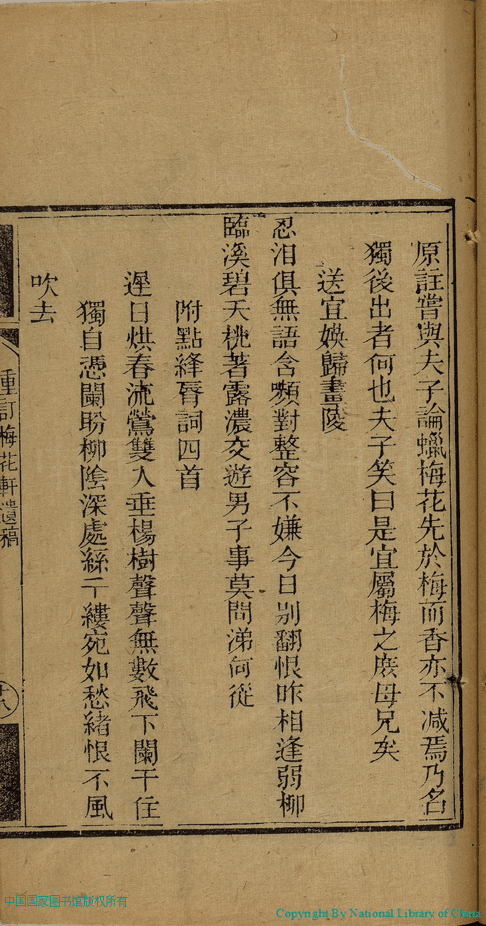 原註嘗與夫子論蠟梅花先於梅而香亦不減焉乃名
獨後出者何也夫子笑曰是宜屬梅之庶母兄矣
送宜媖歸畫陵
忍泪俱無語含嚬對整容不嫌今日别翻恨昨相逢弱柳
臨溪碧夭桃著露濃交遊男子事莫問涕何從
附點絳脣詞四首
遲日烘春流鶯雙入垂楊樹聲聲無數飛下闌干住
獨自憑闌盼柳陰深處絲千縷宛如愁緒恨不風
吹去
重訂梅花軒遺稿
十八
中国国家图书馆版权所有
Copyright By National Library of China